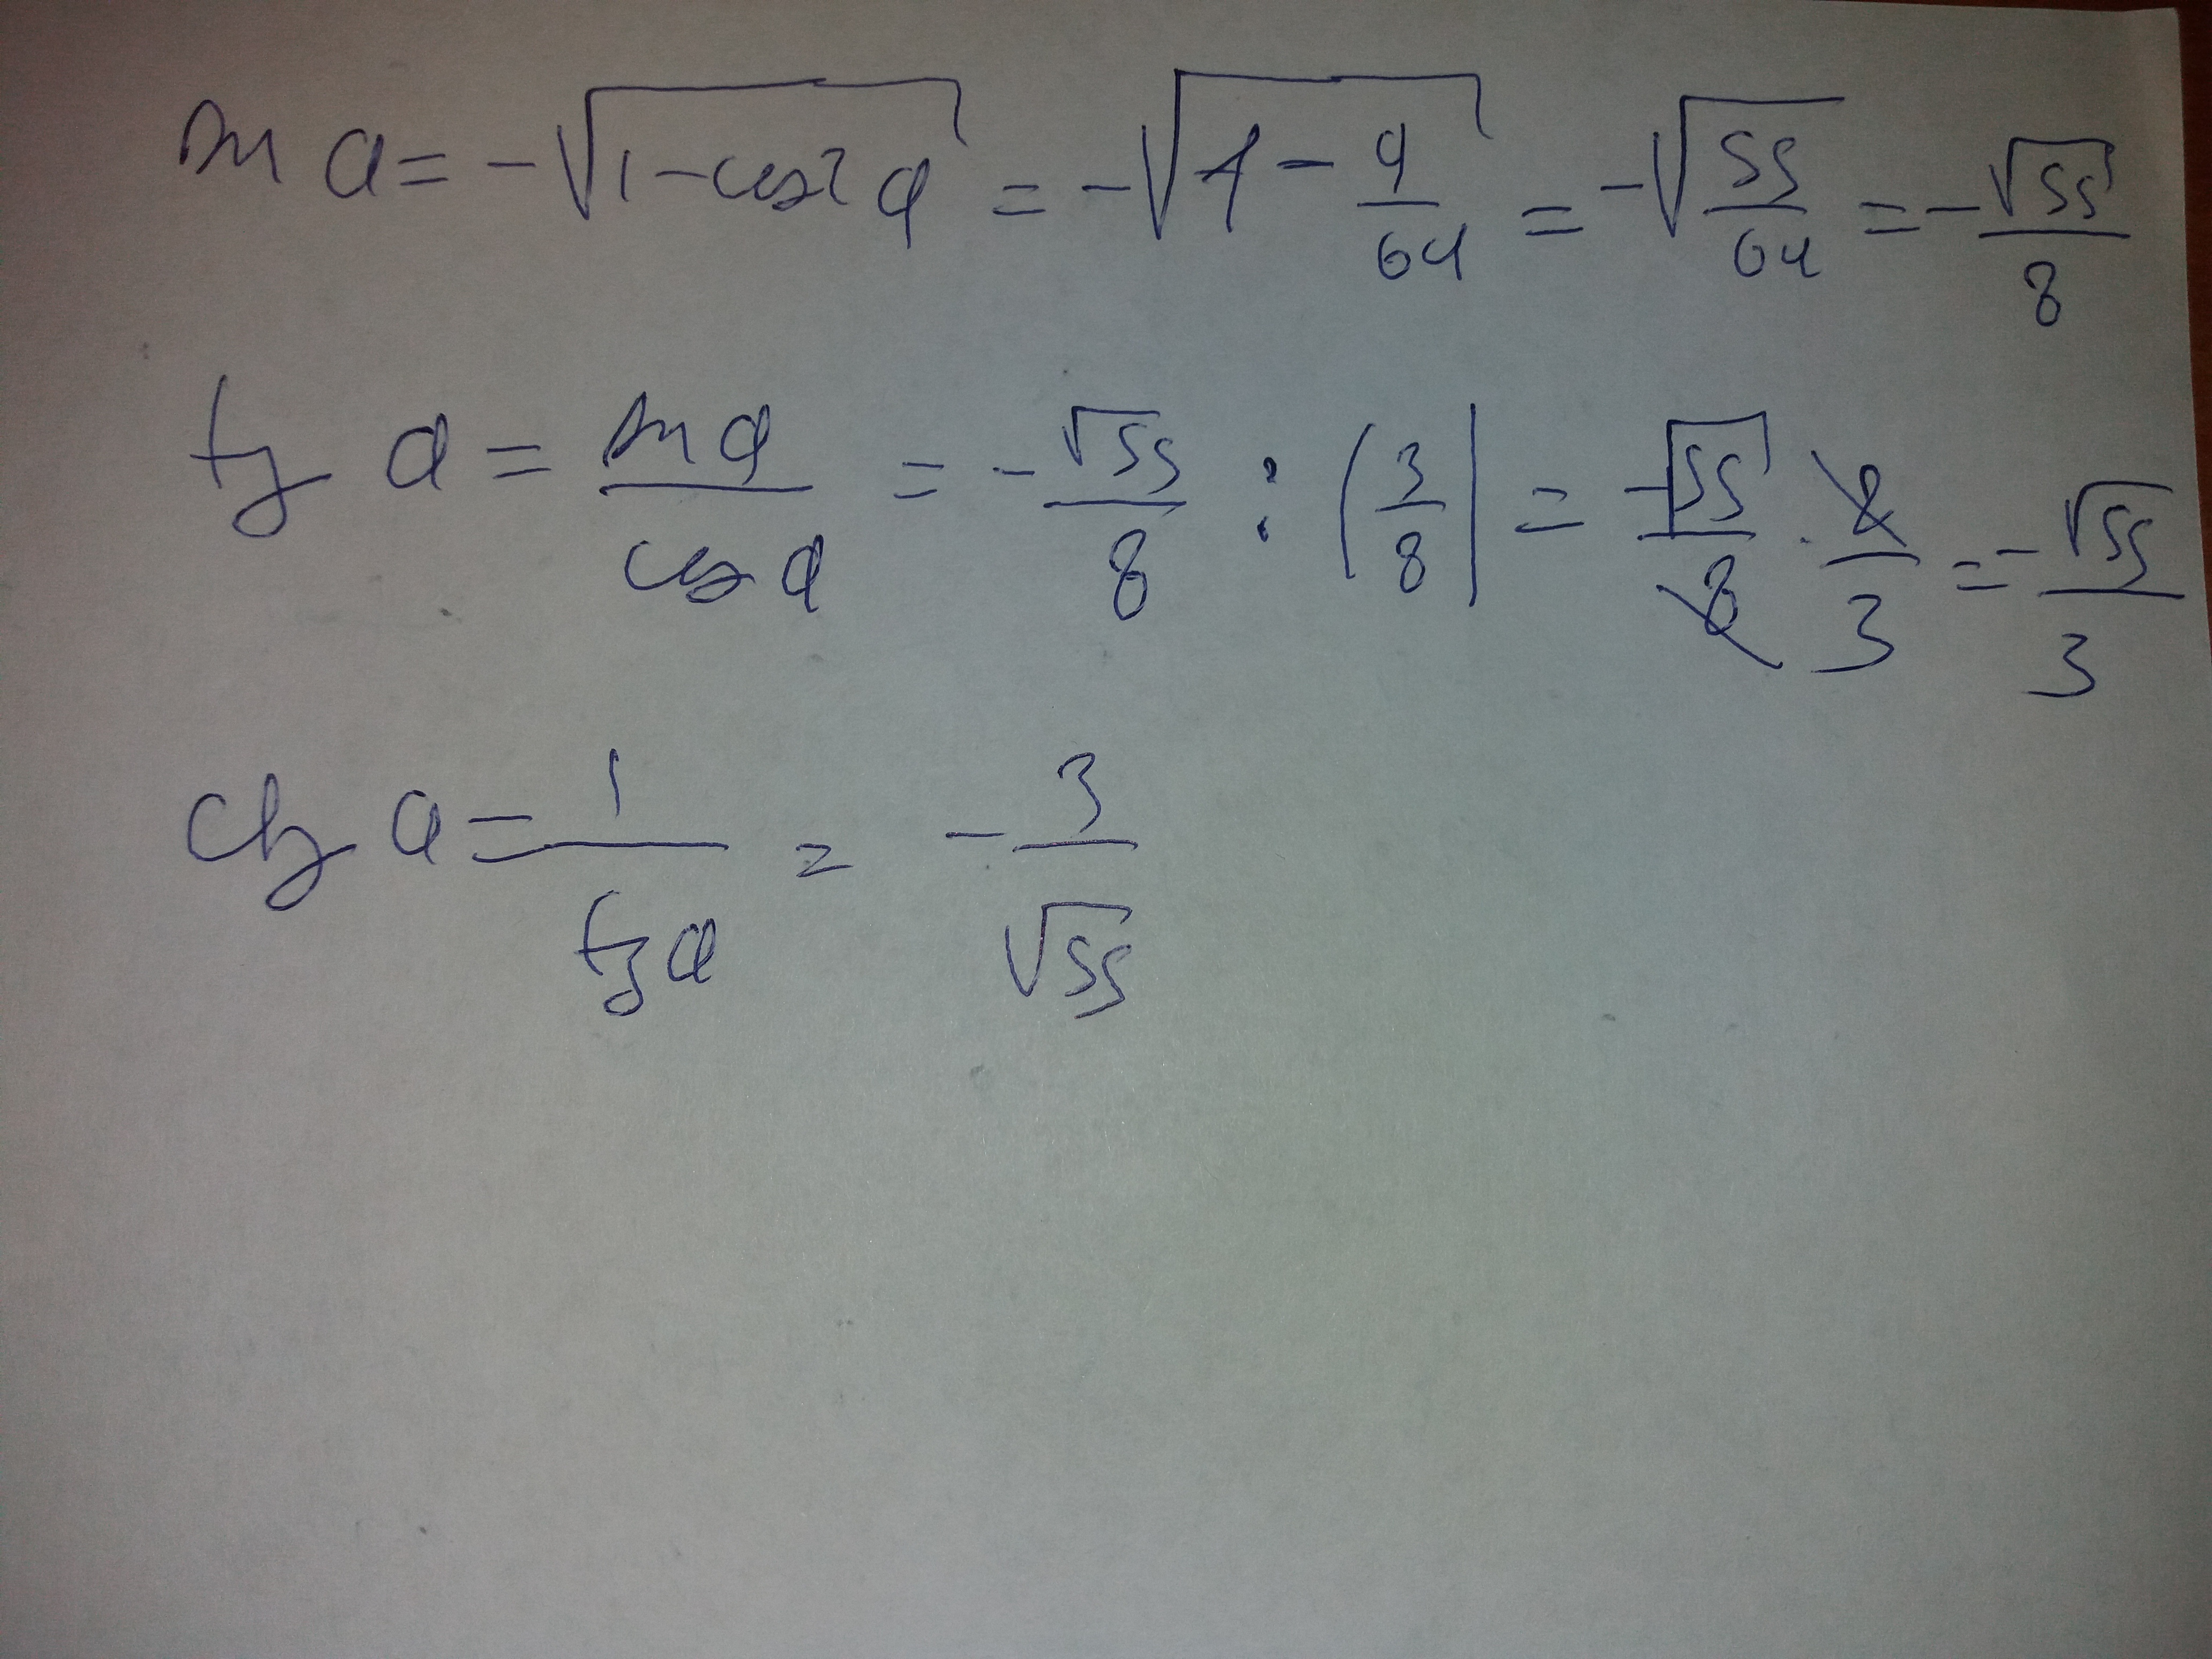 sin a = -√(1-cos² a) = -√(1 - 9/64) = -√(55/64) = -√55/8
tg a = sin a/cos a = -√55/8 : (3/8) = -√55/8 · 8/3 = -√55/3
ctg a = 1/tg a = -3/√55